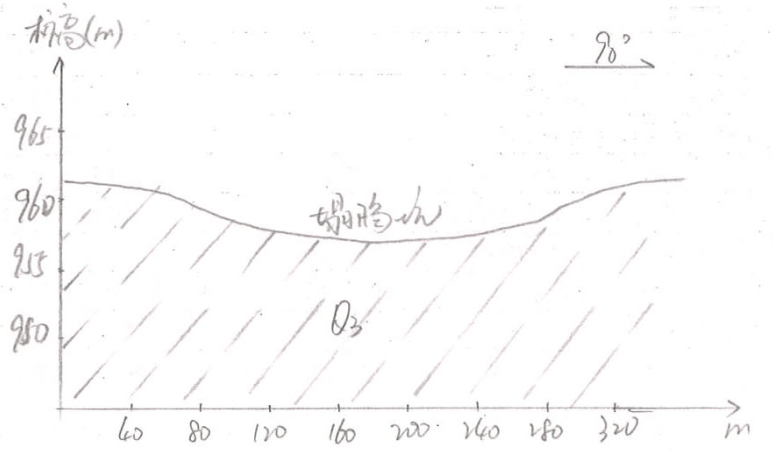 标高(m)
90°
965
960
塌陷坑
955
Q3
950
40 80 120 160 200 240 280 320 m